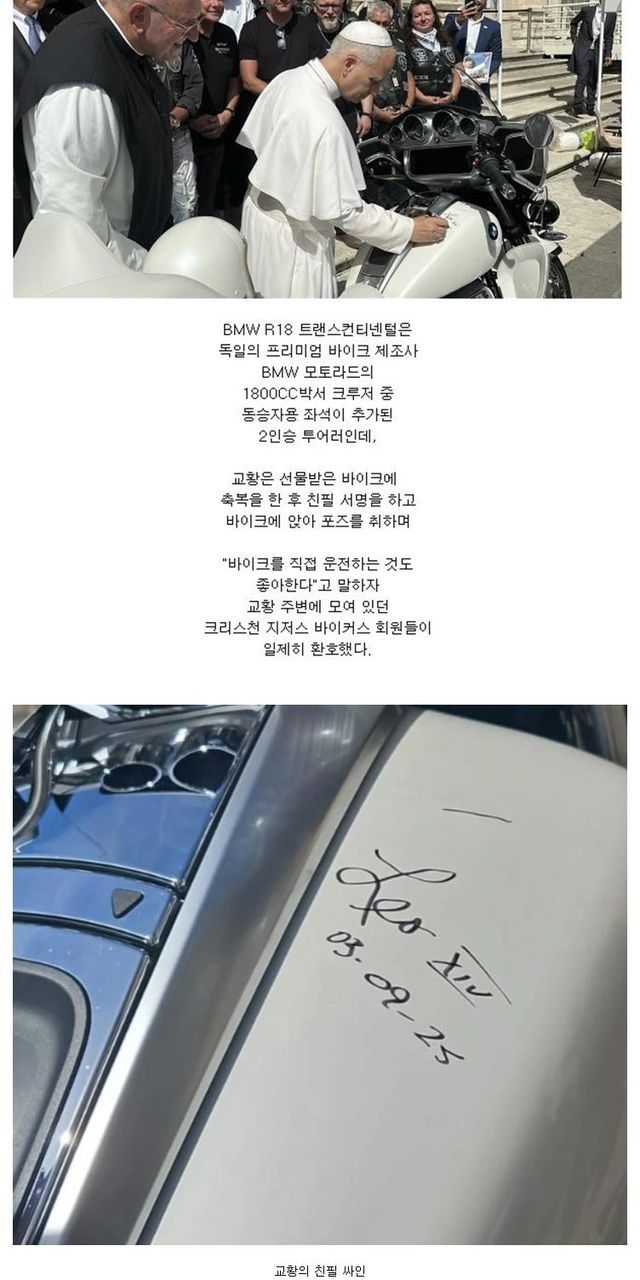 BMW R18 트랜스컨티넨털은
독일의 프리미엄 바이크 제조사
BMW 모토라드의
1800CC박서 크루저 중
동승자용 좌석이 추가된
2인승 투어러인데,
교황은 선물받은 바이크에
축복을 한 후 친필 서명을 하고
바이크에 앉아 포즈를 취하며
"바이크를 직접 운전하는 것도
좋아한다"고 말하자
교황 주변에 모여 있던
크리스천 지저스 바이커스 회원들이
일제히 환호했다.
Leo XIV
03-09-25
교황의 친필 싸인